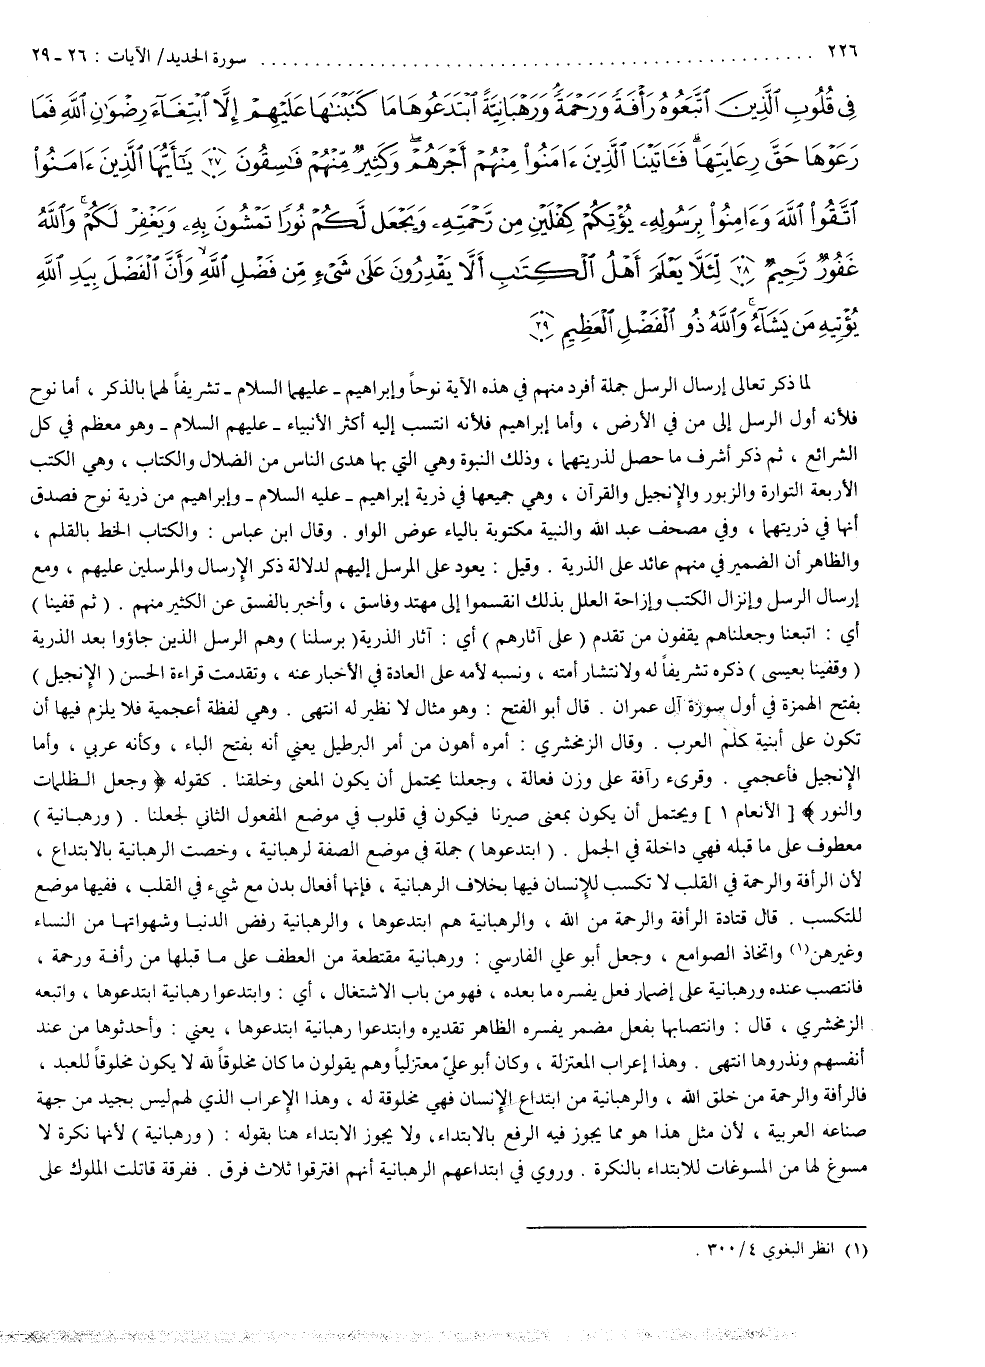 ٢٢٦ ........................................ سورة الحديد/ الآيات : ٢٦ ـ ٢٩
فِى قُلُوبِ ٱلَّذِينَ ٱتَّبَعُوهُ رَأْفَةً وَرَحْمَةً وَرَهْبَانِيَّةً ٱبْتَدَعُوهَا مَا كَتَبْنَٰهَا عَلَيْهِمْ إِلَّا ٱبْتِغَآءَ رِضْوَٰنِ ٱللَّهِ فَمَا
رَعَوْهَا حَقَّ رِعَايَتِهَا ۖ فَـَٔاتَيْنَا ٱلَّذِينَ ءَامَنُوا۟ مِنْهُمْ أَجْرَهُمْ ۖ وَكَثِيرٌ مِّنْهُمْ فَٰسِقُونَ ٢٧ يَٰٓأَيُّهَا ٱلَّذِينَ ءَامَنُوا۟
ٱتَّقُوا۟ ٱللَّهَ وَءَامِنُوا۟ بِرَسُولِهِۦ يُؤْتِكُمْ كِفْلَيْنِ مِن رَّحْمَتِهِۦ وَيَجْعَل لَّكُمْ نُورًا تَمْشُونَ بِهِۦ وَيَغْفِرْ لَكُمْ ۚ وَٱللَّهُ
غَفُورٌ رَّحِيمٌ ٢٨ لِّئَلَّا يَعْلَمَ أَهْلُ ٱلْكِتَٰبِ أَلَّا يَقْدِرُونَ عَلَىٰ شَىْءٍ مِّن فَضْلِ ٱللَّهِ ۙ وَأَنَّ ٱلْفَضْلَ بِيَدِ ٱللَّهِ
يُؤْتِيهِ مَن يَشَآءُ ۚ وَٱللَّهُ ذُو ٱلْفَضْلِ ٱلْعَظِيمِ ٢٩
لما ذكر تعالى إرسال الرسل جملة أفرد منهم في هذه الآية نوحاً وإبراهيم ـ عليهما السلام ـ تشريفاً لهما بالذكر ، أما نوح
فلأنه أول الرسل إلى من في الأرض ، وأما إبراهيم فلأنه انتسب إليه أكثر الأنبياء ـ عليهم السلام ـ وهو معظم في كل
الشرائع ، ثم ذكر أشرف ما حصل لذريتهما ، وذلك النبوة وهي التي بها هدى الناس من الضلال والكتاب ، وهي الكتب
الأربعة التوارة والزبور والإنجيل والقرآن ، وهي جميعها في ذرية إبراهيم ـ عليه السلام ـ وإبراهيم من ذرية نوح فصدق
أنها في ذريتهما ، وفي مصحف عبد الله والنبية مكتوبة بالياء عوض الواو . وقال ابن عباس : والكتاب الخط بالقلم ،
والظاهر أن الضمير في منهم عائد على الذرية . وقيل : يعود على المرسل إليهم لدلالة ذكر الإرسال والمرسلين عليهم ، ومع
إرسال الرسل وإنزال الكتب وإزاحة العلل بذلك انقسموا إلى مهتد وفاسق ، وأخبر بالفسق عن الكثير منهم . ( ثم قفينا )
أي : اتبعنا وجعلناهم يقفون من تقدم ( على آثارهم ) أي : آثار الذرية ( برسلنا ) وهم الرسل الذين جاؤوا بعد الذرية
( وقفينا بعيسى ) ذكره تشريفاً له ولانتشار أمته ، ونسبه لأمه على العادة في الأخبار عنه ، وتقدمت قراءة الحسن ( الإنجيل )
بفتح الهمزة في أول سورة آل عمران . قال أبو الفتح : وهو مثال لا نظير له انتهى . وهي لفظة أعجمية فلا يلزم فيها أن
تكون على أبنية كلم العرب . وقال الزمخشري : أمره أهون من أمر البرطيل يعني أنه بفتح الباء ، وكأنه عربي ، وأما
الإنجيل فأعجمي . وقرىء رآفة على وزن فعالة ، وجعلنا يحتمل أن يكون المعنى وخلقنا . كقوله ﴿ وجعل الظلمات
والنور ﴾ [ الأنعام ١ ] ويحتمل أن يكون بمعنى صيرنا فيكون في قلوب في موضع المفعول الثاني لجعلنا . ( ورهبانية )
معطوف على ما قبله فهي داخلة في الجمل . ( ابتدعوها ) جملة في موضع الصفة لرهبانية ، وخصت الرهبانية بالابتداع ،
لأن الرأفة والرحمة في القلب لا تكسب للإنسان فيها بخلاف الرهبانية ، فإنها أفعال بدن مع شيء في القلب ، ففيها موضع
للتكسب . قال قتادة الرأفة والرحمة من الله ، والرهبانية هم ابتدعوها ، والرهبانية رفض الدنيا وشهواتها من النساء
وغيرهن(١) واتخاذ الصوامع ، وجعل أبو علي الفارسي : ورهبانية مقتطعة من العطف على ما قبلها من رأفة ورحمة ،
فانتصب عنده ورهبانية على إضمار فعل يفسره ما بعده ، فهو من باب الاشتغال ، أي : وابتدعوا رهبانية ابتدعوها ، واتبعه
الزمخشري ، قال : وانتصابها بفعل مضمر يفسره الظاهر تقديره وابتدعوا رهبانية ابتدعوها ، يعني : وأحدثوها من عند
أنفسهم ونذروها انتهى . وهذا إعراب المعتزلة ، وكان أبو عليّ معتزلياً وهم يقولون ما كان مخلوقاً لله لا يكون مخلوقاً للعبد ،
فالرأفة والرحمة من خلق الله ، والرهبانية من ابتداع الإنسان فهي مخلوقة له ، وهذا الإعراب الذي لهم ليس بجيد من جهة
صناعه العربية ، لأن مثل هذا هو مما يجوز فيه الرفع بالابتداء، ولا يجوز الابتداء هنا بقوله : ( ورهبانية ) لأنها نكرة لا
مسوغ لها من المسوغات للابتداء بالنكرة . وروي في ابتداعهم الرهبانية أنهم افترقوا ثلاث فرق . ففرقة قاتلت الملوك على
(١) انظر البغوي ٤/ ٣٠٠ .